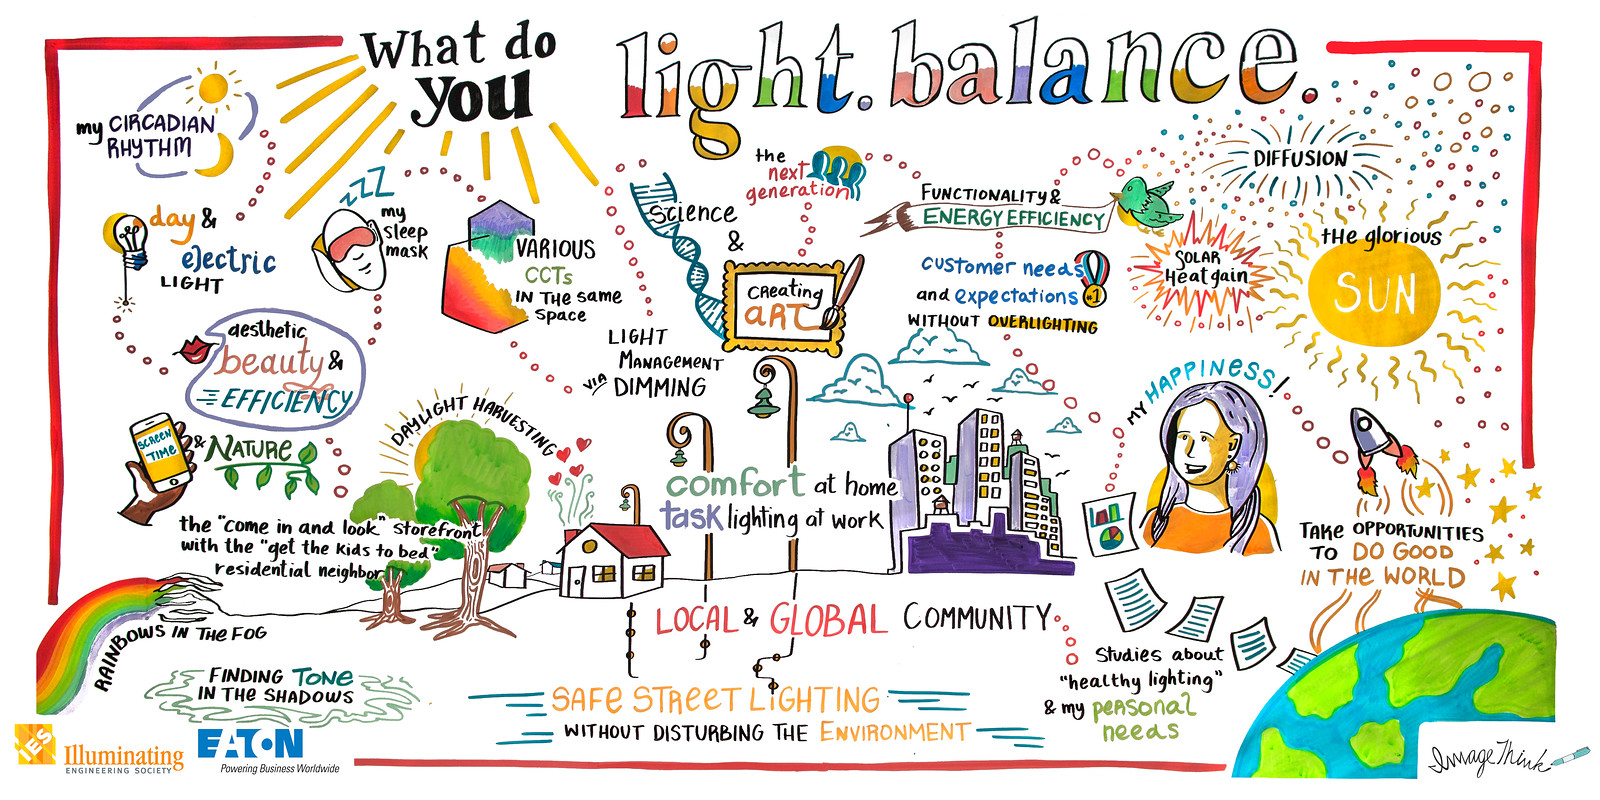 What do
you
light. balance.
my CIRCADIAN
RHYTHM
day &
electric
LIGHT
zzz
my
sleep
mask
VARIOUS
CCTs
IN THE same
space
Science
&
CREATING
ART
the
next
generation
FUNCTIONALITY &
ENERGY EFFICIENCY
customer needs
and expectations
#1
WITHOUT OVERLIGHTING
DIFFUSION
SOLAR
Heat gain
tHe glorious
SUN
aesthetic
beauty &
EFFICIENCY
LIGHT
MANAGEMENT
VIA DIMMING
SCREEN
TIME
& NATURE
DAYLIGHT HARVESTING
the "come in and look" storefront
with the "get the kids to bed"
residential neighbor
comfort at home
task lighting at work
MY HAPPINESS!
TAKE OPPORTUNITIES
TO DO GOOD
IN THE WORLD
RAINBOWS IN THE FOG
FINDING TONE
IN THE SHADOWS
LOCAL & GLOBAL COMMUNITY
SAFE STREET LIGHTING
WITHOUT DISTURBING THE ENVIRONMENT
Studies about
"healthy lighting"
& my personal
needs
IES
Illuminating
ENGINEERING SOCIETY
EATON
Powering Business Worldwide
ImageThink